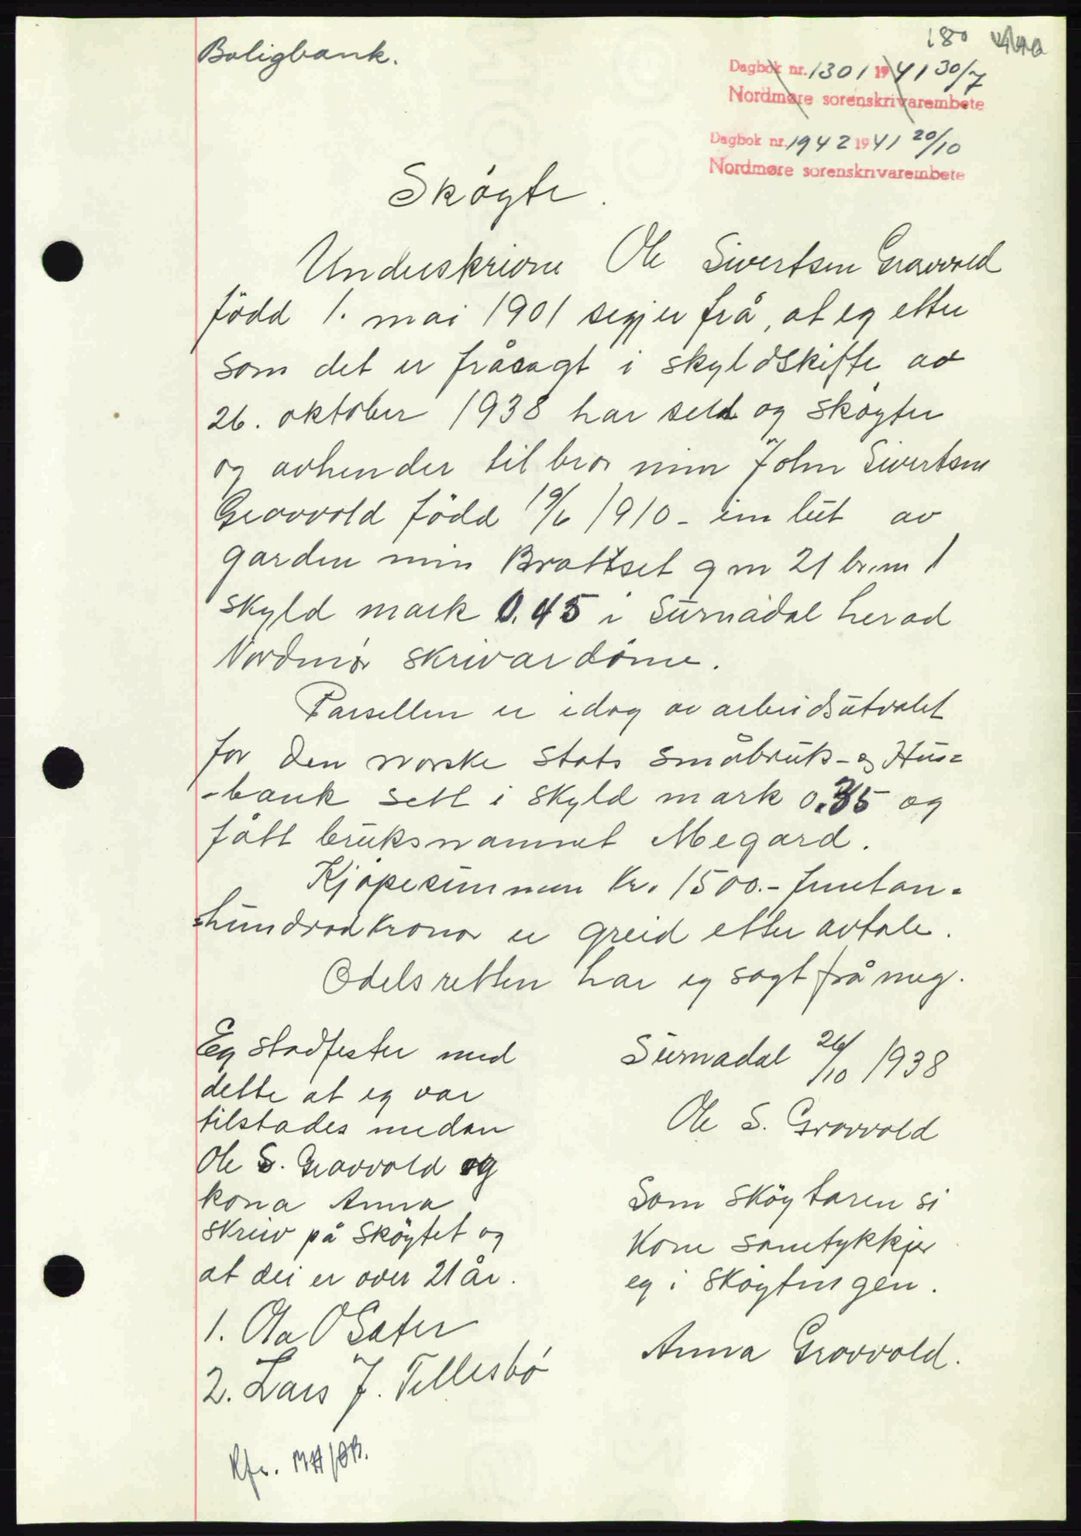 180
Boligbank.
Dagbok nr. 1301 1941 30/7
Nordmøre sorenskrivarembete
Dagbok nr. 1942 1941 20/10
Nordmøre sorenskrivarembete
Sköyte.
Underskrivne Ole Sivertsen Gravvold
född 1. mai 1901 segjer frå, at eg etter
som det er fråsagt i skyldskifte av
26. oktober 1938 har seld og sköyter
og avhender til bror min John Sivertsen
Gravvold född 19/6 1910 - ein lut av
garden min Brattset g nr 21 br.nr 1
skyld mark 0.45 i Surnadal herad
Nordmör skrivardöme.
Parsellen er idag av arbeidsutvalet
for den norske stats småbruk- og Hus=
-bank sett i skyld mark 0.35 og
fått bruksnamnet Megard.
Kjöpesummen kr. 1500.- femtan=
=hundrad kronor er greid etter avtale.
Odelsretten har eg sagt frå meg.
Surnadal 26/10 1938
Ole S. Gravvold
Som sköytaren si
kone samtykkjer
eg i sköytingen.
Anna Gravvold.
Eg stadfester med
dette at eg var
tilstades medan
Ole S. Gravvold og
kona Anna
skreiv på sköytet og
at dei er over 21 år.
1. Ola O Sæter
2. Lars J. Tellesbö